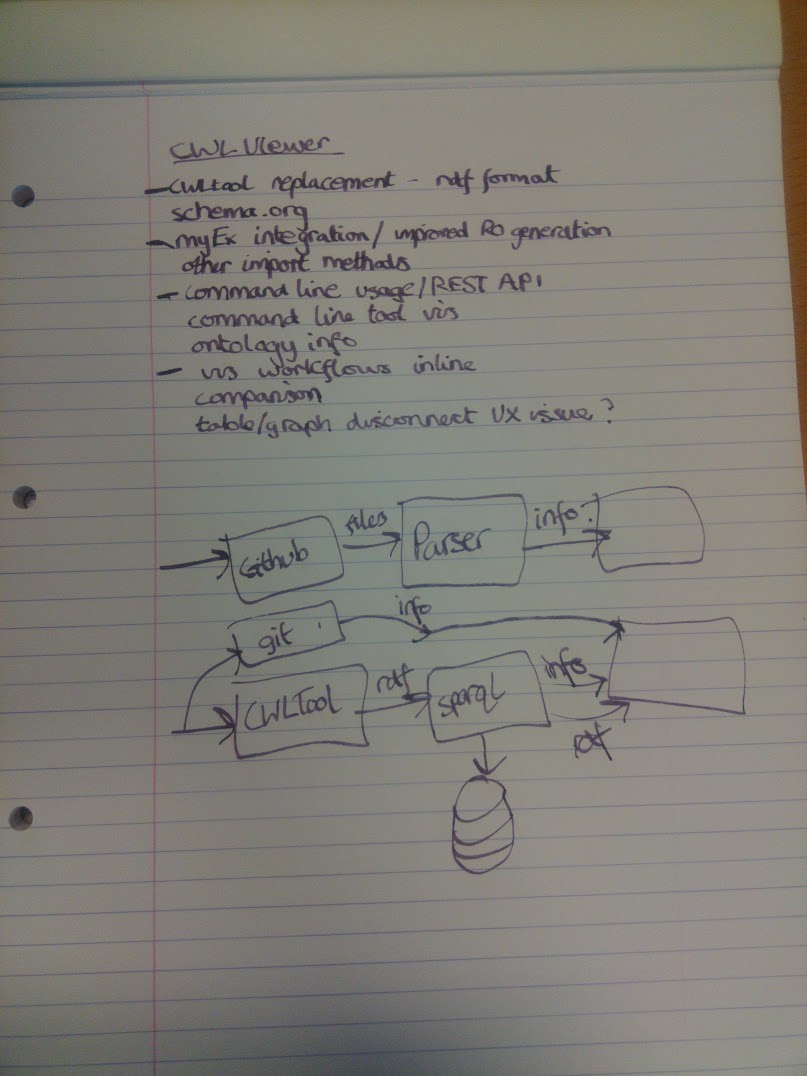 CWL Viewer
- CWLtool replacement - rdf format
schema.org
- myEx integration/ improved RO generation
other import methods
- command line usage/REST API
command line tool vis
ontology info
- vis workflows inline
comparison
table/graph disconnect UX issue?
Github
files
Parser
info
git
info
CWLTool
rdf
sparql
info
rdf